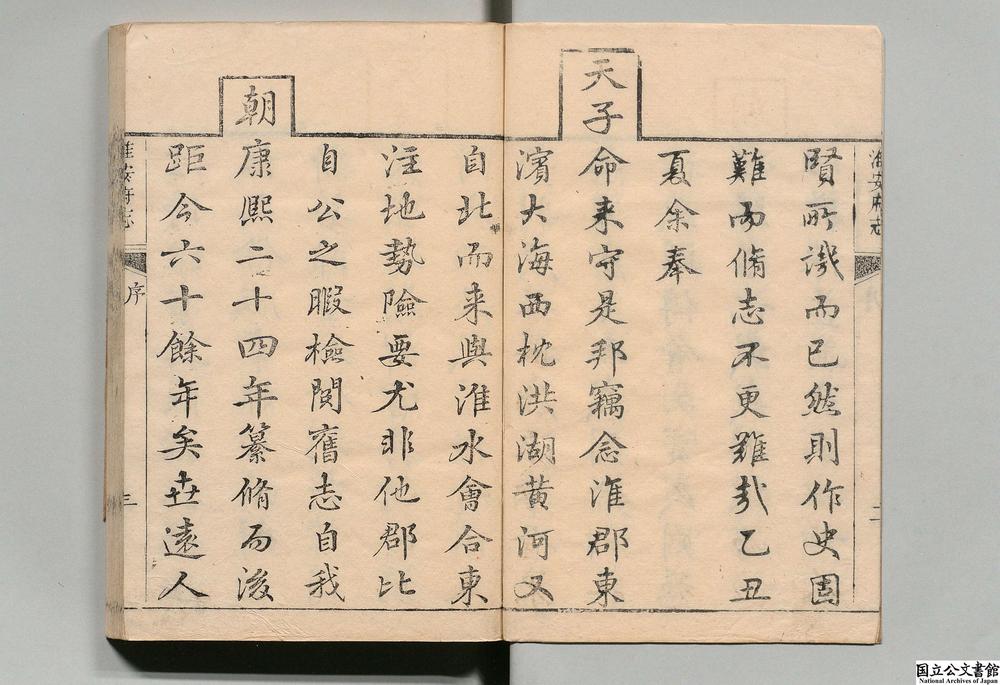 淮安府志
二
賢所譏而已然則作史固
難而脩志不更難哉乙丑
夏余奉
天子
命来守是邦竊念淮郡東
濱大海西枕洪湖黄河又
自北而来與淮水會合東
注地勢險要尤非他郡比
自公之暇檢閱舊志自我
朝
康熙二十四年纂脩而後
距今六十餘年矣世遠人
淮安府志
序
三
国立公文書館
National Archives of Japan